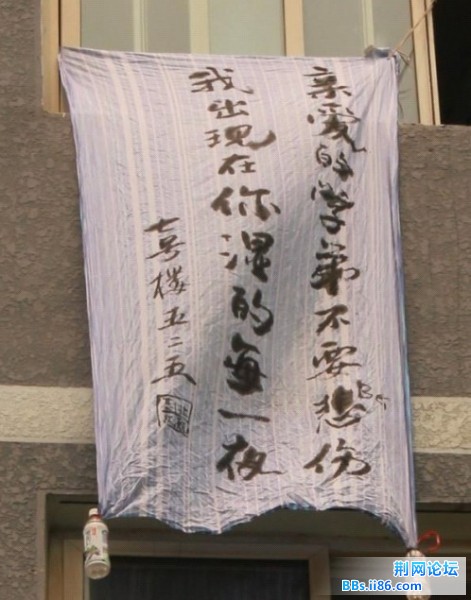 亲爱的学弟不要悲伤
我出现在你湿的每一夜
七号楼五二五
荆网论坛
BBs.ii86.com